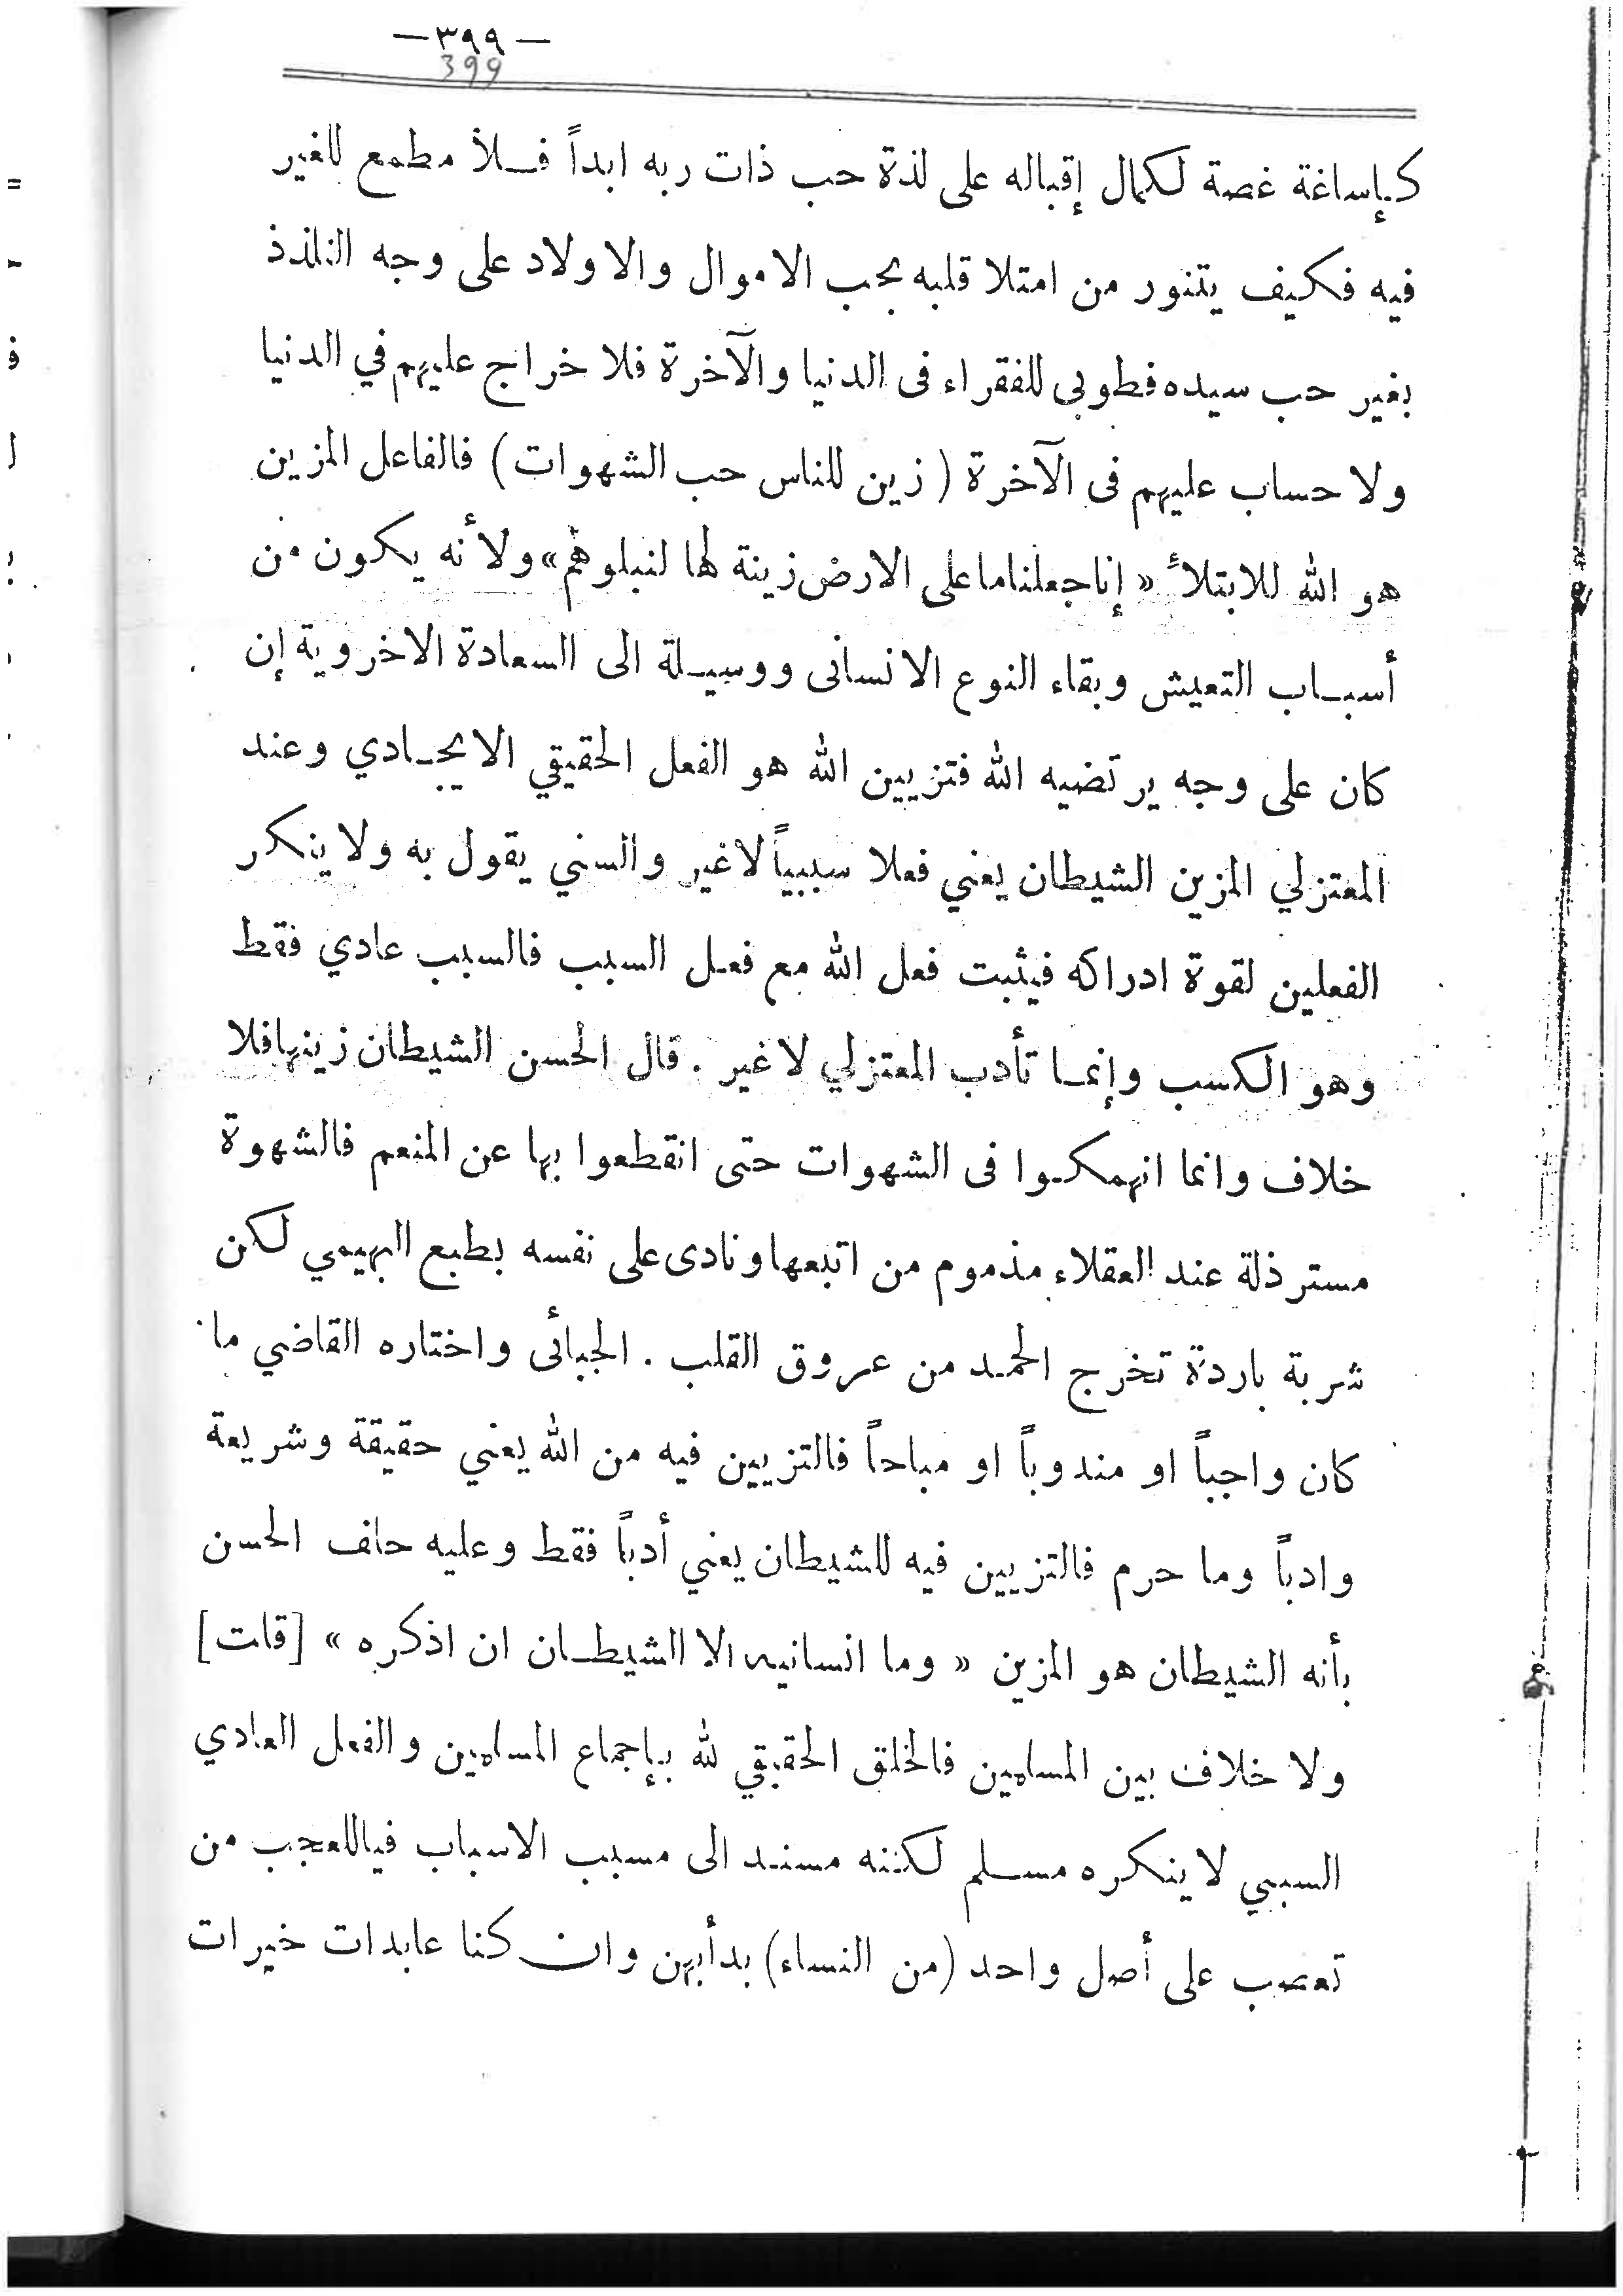 — ٣٩٩ —
399
كإساغة غصة لكمال إقباله على لذة حب ذات ربه ابداً فلا مطمع للغير
فيه فكيف يتنور من امتلا قلبه بحب الاموال والاولاد على وجه التلذذ
بغير حب سيده فطوبى للفقراء فى الدنيا والآخرة فلا خراج عليهم في الدنيا
ولا حساب عليهم فى الآخرة ( زين للناس حب الشهوات ) فالفاعل المزين
هو الله للابتلاء « إنا جعلنا ما على الارض زينة لها لنبلوهم » ولأنه يكون من
أسباب التعيش وبقاء النوع الانسانى ووسيلة الى السعادة الاخروية إن
كان على وجه يرتضيه الله فتزيين الله هو الفعل الحقيقي الايجادي وعند
المعتزلي المزين الشيطان يعني فعلا سببياً لاغير والسني يقول به ولا ينكر
الفعلين لقوة ادراكه فيثبت فعل الله مع فعل السبب فالسبب عادي فقط
وهو الكسب وإنما تأدب المعتزلي لاغير . قال الحسن الشيطان زينها فلا
خلاف وانما انهمكوا فى الشهوات حتى انقطعوا بها عن المنعم فالشهوة
مسترذلة عند العقلاء مذموم من اتبعها ونادى على نفسه بطبع البهيمي لكن
شربة باردة تخرج الحمد من عروق القلب . الجبائى واختاره القاضي ما
كان واجباً او مندوباً او مباحاً فالتزيين فيه من الله يعني حقيقة وشريعة
وادباً وما حرم فالتزيين فيه للشيطان يعني أدباً فقط وعليه حلف الحسن
بأنه الشيطان هو المزين « وما انسانيه الا الشيطان ان اذكره » [قلت]
ولا خلاف بين المسلمين فالخلق الحقيقي لله بإجماع المسلمين والفعل العادي
السببي لا ينكره مسلم لكننه مسند الى مسبب الاسباب فياللعجب من
تعصب على أصل واحد (من النساء) بدأبهن وان كنا عابدات خيرات